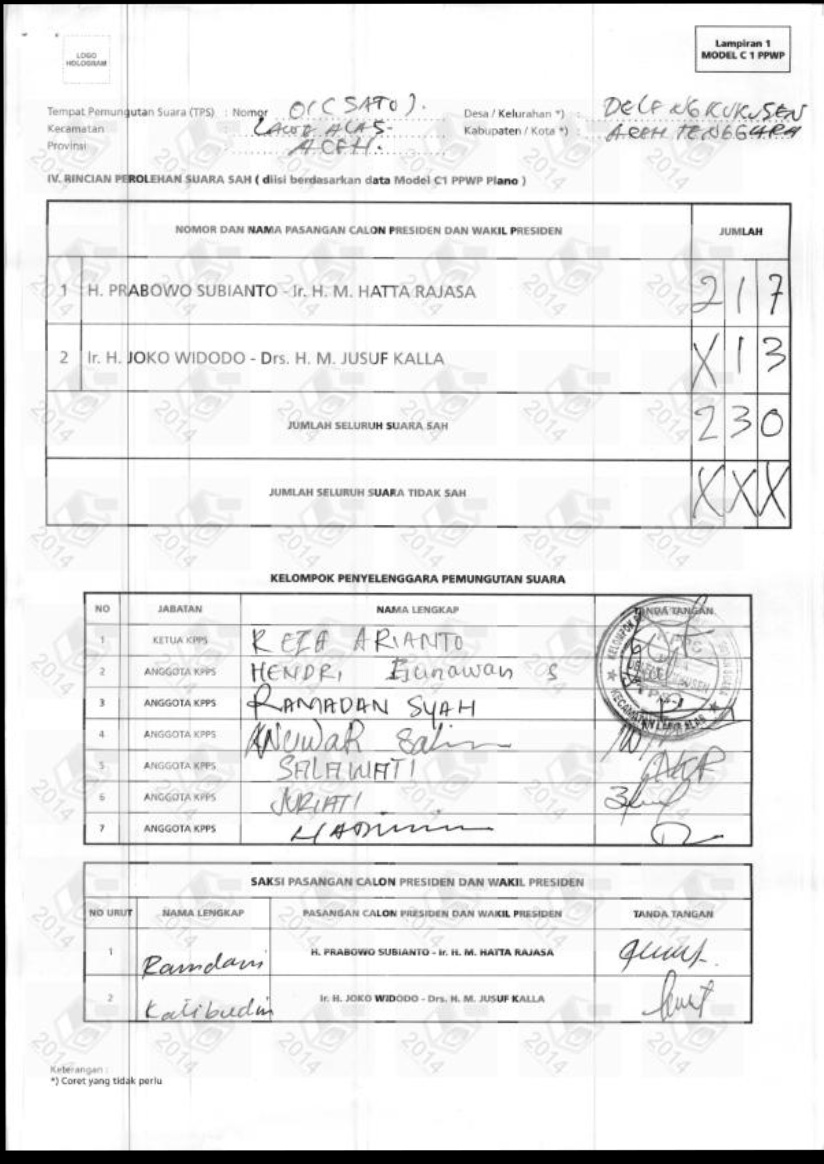 LOGO
HOLOGRAM
Lampiran 1
MODEL C 1 PPWP
Tempat Pemungutan Suara (TPS) : Nomor 01 (SATO). Desa / Kelurahan *) : DELENGKUKUSEN
Kecamatan : LAWE ALAS Kabupaten / Kota *) : ACEH TENGGARA
Provinsi : ACEH.
IV. RINCIAN PEROLEHAN SUARA SAH ( diisi berdasarkan data Model C1 PPWP Plano )
NOMOR DAN NAMA PASANGAN CALON PRESIDEN DAN WAKIL PRESIDEN JUMLAH
1 H. PRABOWO SUBIANTO - Ir. H. M. HATTA RAJASA 2 1 7
2 Ir. H. JOKO WIDODO - Drs. H. M. JUSUF KALLA X 1 3
JUMLAH SELURUH SUARA SAH 2 3 0
JUMLAH SELURUH SUARA TIDAK SAH X X X
KELOMPOK PENYELENGGARA PEMUNGUTAN SUARA
NO JABATAN NAMA LENGKAP TANDA TANGAN
1 KETUA KPPS REZA ARIANTO
2 ANGGOTA KPPS HENDRI Gunawan S
3 ANGGOTA KPPS RAMADAN SYAH
4 ANGGOTA KPPS ANUWAR Salim
5 ANGGOTA KPPS SALAWATI
6 ANGGOTA KPPS JURIATI
7 ANGGOTA KPPS
SAKSI PASANGAN CALON PRESIDEN DAN WAKIL PRESIDEN
NO URUT NAMA LENGKAP PASANGAN CALON PRESIDEN DAN WAKIL PRESIDEN TANDA TANGAN
1 Ramdani H. PRABOWO SUBIANTO - Ir. H. M. HATTA RAJASA
2 Katibudin Ir. H. JOKO WIDODO - Drs. H. M. JUSUF KALLA
Keterangan :
*) Coret yang tidak perlu